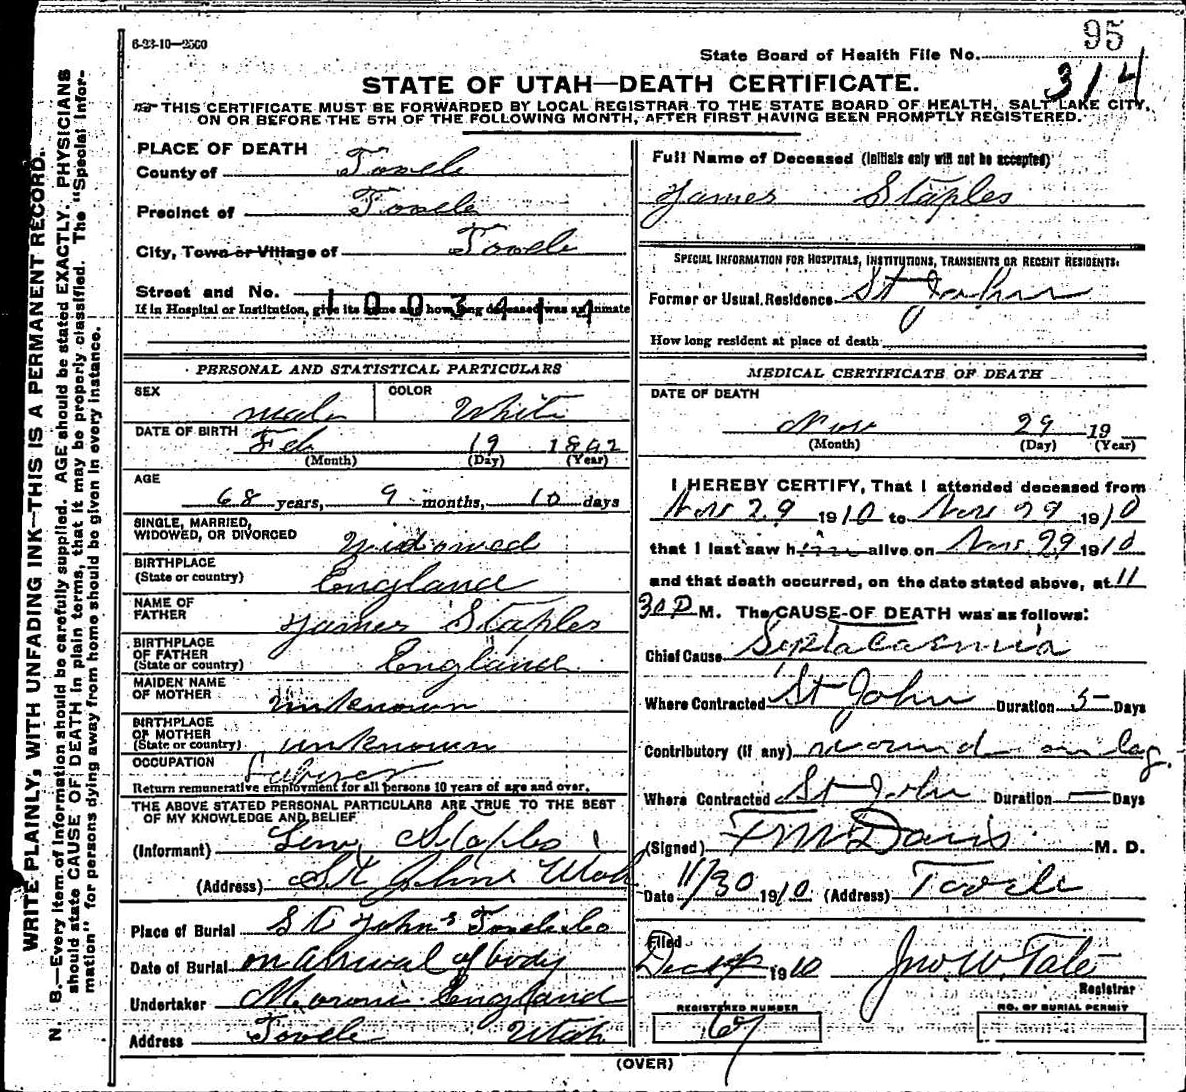 6-23-10—2500
95
State Board of Health File No.
314
STATE OF UTAH—DEATH CERTIFICATE.
THIS CERTIFICATE MUST BE FORWARDED BY LOCAL REGISTRAR TO THE STATE BOARD OF HEALTH, SALT LAKE CITY,
ON OR BEFORE THE 5TH OF THE FOLLOWING MONTH, AFTER FIRST HAVING BEEN PROMPTLY REGISTERED.
WRITE PLAINLY, WITH UNFADING INK—THIS IS A PERMANENT RECORD.
N. B.—Every item of information should be carefully supplied. AGE should be stated EXACTLY. PHYSICIANS
should state CAUSE OF DEATH in plain terms, that it may be properly classified. The "Special Infor-
mation" for persons dying away from home should be given in every instance.
PLACE OF DEATH
County of Tooele
Precinct of Tooele
City, Town or Village of Tooele
Street and No.
1003414
If in Hospital or Institution, give its name and how long deceased was an inmate
PERSONAL AND STATISTICAL PARTICULARS
SEX male COLOR White
DATE OF BIRTH Feb 19 1842
(Month) (Day) (Year)
AGE
68 years, 9 months, 10 days
SINGLE, MARRIED,
WIDOWED, OR DIVORCED Widowed
BIRTHPLACE
(State or country) England
NAME OF
FATHER James Staples
BIRTHPLACE
OF FATHER
(State or country) England
MAIDEN NAME
OF MOTHER unknown
BIRTHPLACE
OF MOTHER
(State or country) unknown
OCCUPATION Laborer
Return remunerative employment for all persons 10 years of age and over.
THE ABOVE STATED PERSONAL PARTICULARS ARE TRUE TO THE BEST
OF MY KNOWLEDGE AND BELIEF
(Informant) Staples
(Address) St Johns Utah
Place of Burial St Johns Tooele Co
Date of Burial on arival of body
Undertaker Moroni England
Address Tooele Utah
Full Name of Deceased (Initials only will not be accepted)
James Staples
SPECIAL INFORMATION FOR HOSPITALS, INSTITUTIONS, TRANSIENTS OR RECENT RESIDENTS.
Former or Usual Residence St John
How long resident at place of death
MEDICAL CERTIFICATE OF DEATH
DATE OF DEATH
Nov 29 19
(Month) (Day) (Year)
I HEREBY CERTIFY, That I attended deceased from
Nov 29 1910 to Nov 29 1910
that I last saw him alive on Nov 29 1910
and that death occurred, on the date stated above, at 11
30 P M. The CAUSE OF DEATH was as follows:
Chief Cause Septacaemia
Where Contracted St John Duration 5 Days
Contributory (if any) wound on leg.
Where Contracted St John Duration — Days
(Signed) F M Davis M. D.
Date 11/30 1910 (Address) Tooele
Filed
Dec 1910 Jno. W. Tate
Registrar
REGISTERED NUMBER
67
NO. OF BURIAL PERMIT
(OVER)